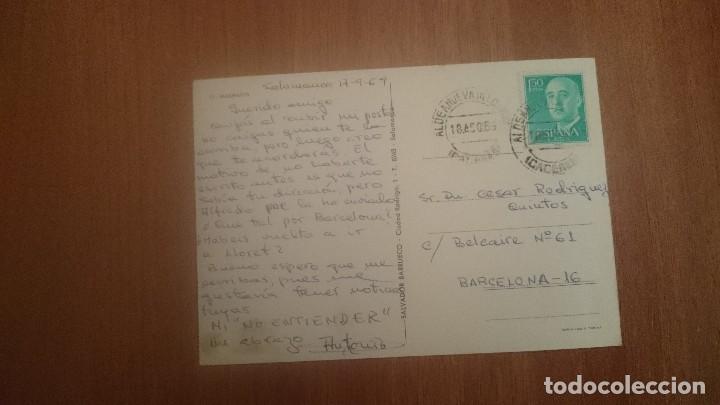 Salamanca 17-9-69
Querido amigo
al recibir mi postal
no caigas quien te la
escriba, pero luego creo
que te acordaras. El
motivo de no haberte
escrito antes es que no
sabia tu dirección, pero
Alfredo me la ha enviado
¿Que tal por Barcelona?
¿Habeis vuelto a ir
a Lloret?
Bueno espero que me
escribas, pues me
gustaria tener noticias
tuyas
NI "NO ENTIENDER"
Un abrazo Antonio
SALVADOR BARRUECO - Ciudad Rodrigo, 1 - T. - Salamanca
ALDEANUEVA
18 AGO 69
(CACERES)
ALDEA
(CACERES)
1'50
ESPAÑA
Sr. Dn Cesar Rodriguez
Quintos
C/ Belcaire Nº 61
BARCELONA-16
todocoleccion.net